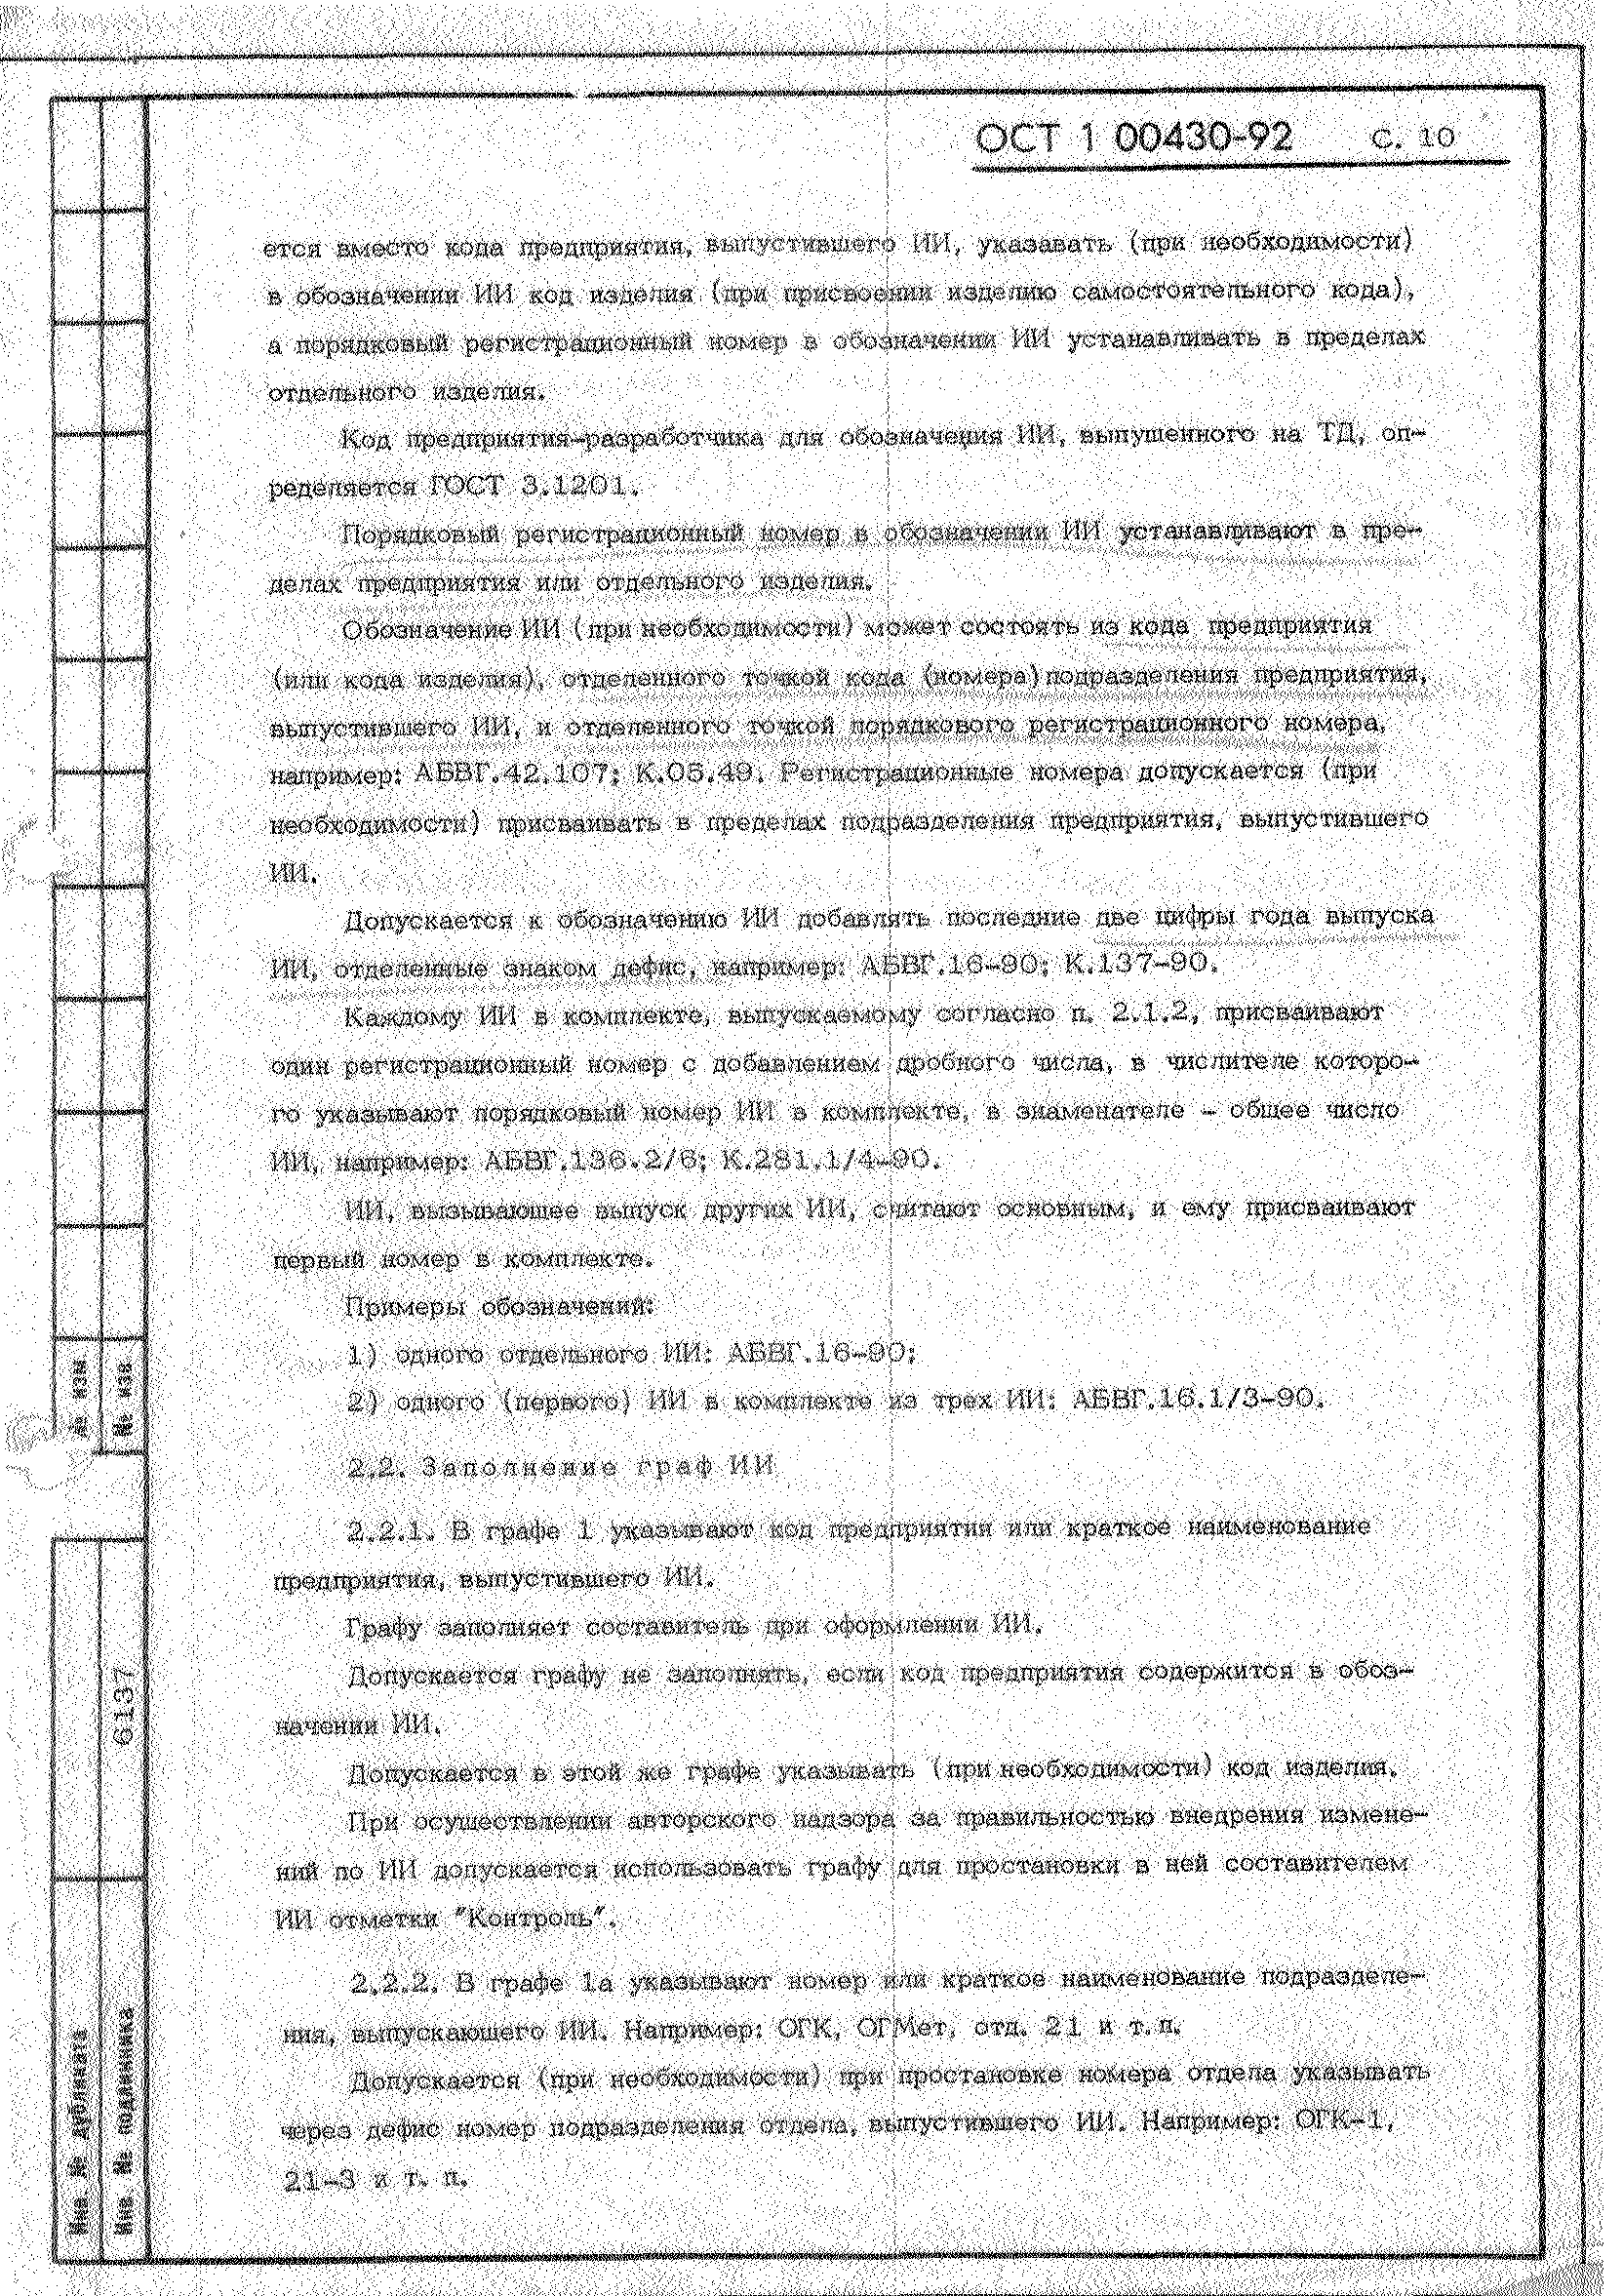 ОСТ 1 00430-92 С. 10
ется вместо кода предприятия, выпустившего ИИ, указавать (при необходимости)
в обозначении ИИ код изделия (при присвоении изделию самостоятельного кода),
а порядковый регистрационный номер в обозначении ИИ устанавливать в пределах
отдельного изделия.
Код предприятия-разработчика для обозначения ИИ, выпущенного на ТД, оп-
ределяется ГОСТ 3.1201.
Порядковый регистрационный номер в обозначении ИИ устанавливают в пре-
делах предприятия или отдельного изделия.
Обозначение ИИ (при необходимости) может состоять из кода предприятия
(или кода изделия), отделенного точкой кода (номера) подразделения предприятия,
выпустившего ИИ, и отделенного точкой порядкового регистрационного номера,
например: АБВГ.42.107; К.05.49. Регистрационные номера допускается (при
необходимости) присваивать в пределах подразделения предприятия, выпустившего
ИИ.
Допускается к обозначению ИИ добавлять последние две цифры года выпуска
ИИ, отделенные знаком дефис, например: АБВГ.16-90; К.137-90.
Каждому ИИ в комплекте, выпускаемому согласно п. 2.1.2, присваивают
один регистрационный номер с добавлением дробного числа, в числителе которо-
го указывают порядковый номер ИИ в комплекте, в знаменателе - общее число
ИИ, например: АБВГ.136.2/6; К.281.1/4-90.
ИИ, вызывающее выпуск других ИИ, считают основным, и ему присваивают
первый номер в комплекте.
Примеры обозначений:
1) одного отдельного ИИ: АБВГ.16-90;
2) одного (первого) ИИ в комплекте из трех ИИ: АБВГ.16.1/3-90.
2.2. Заполнение граф ИИ
2.2.1. В графе 1 указывают код предприятия или краткое наименование
предприятия, выпустившего ИИ.
Графу заполняет составитель при оформлении ИИ.
Допускается графу не заполнять, если код предприятия содержится в обоз-
начении ИИ.
Допускается в этой же графе указывать (при необходимости) код изделия.
При осуществлении авторского надзора за правильностью внедрения измене-
ний по ИИ допускается использовать графу для простановки в ней составителем
ИИ отметки "Контроль".
2.2.2. В графе 1а указывают номер или краткое наименование подразделе-
ния, выпускающего ИИ. Например: ОГК, ОГМет, отд. 21 и т.п.
Допускается (при необходимости) при простановке номера отдела указывать
через дефис номер подразделения отдела, выпустившего ИИ. Например: ОГК-1,
21-3 и т. п.
№ изм
№ изв
6137
Инв. № дубликата
Инв. № подлинника